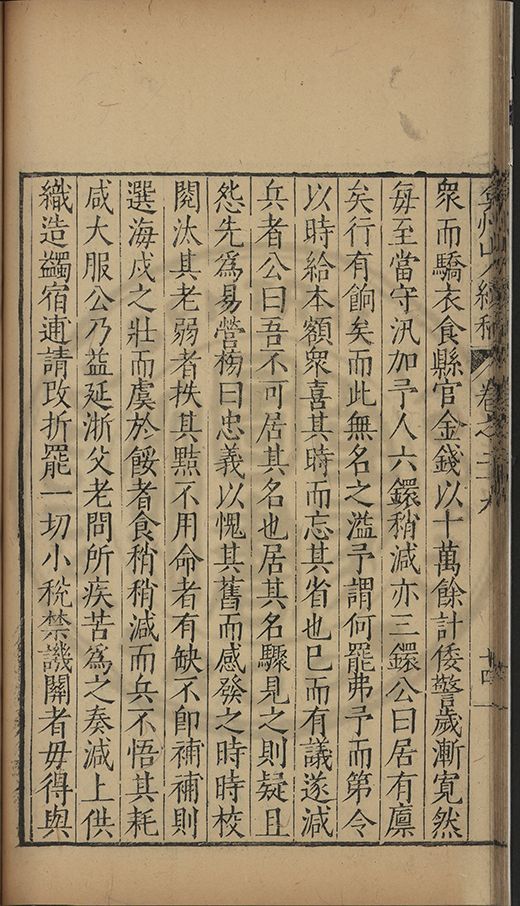 弇州山人續稿 卷之三十九 十四
衆而驕衣食縣官金錢以十萬餘計倭警歲漸寬然
每至當守汛加予人六鐶稍減亦三鐶公曰居有廩
矣行有餉矣而此無名之濫予謂何罷弗予而第令
以時給本額衆喜其時而忘其省也已而有議遂減
兵者公曰吾不可居其名也居其名驟見之則疑且
怨先爲易營榜曰忠義以愧其舊而感發之時時校
閱汰其老弱者抶其黠不用命者有缺不卽補補則
選海戍之壯而虞於餒者食稍稍減而兵不悟其耗
咸大服公乃益延浙父老問所疾苦爲之奏減上供
織造蠲宿逋請改折罷一切小稅禁譏關者毋得與